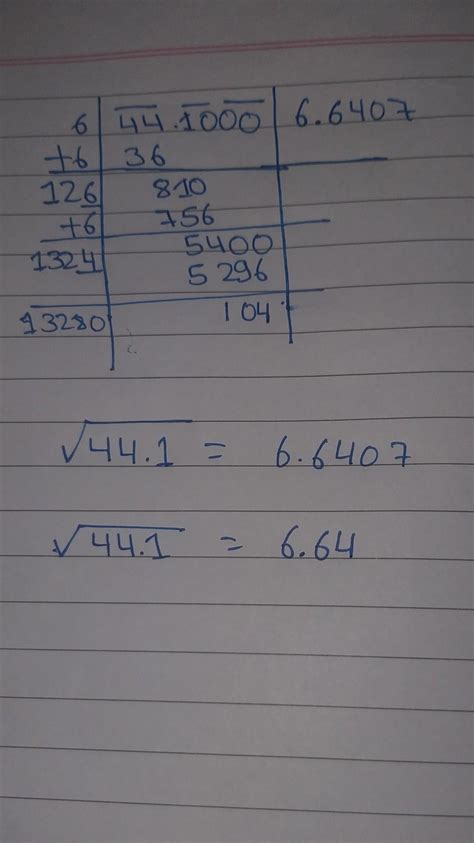 6 44.1000 6.6407
+6 36
126 810
+6 756
1324 5400
5296
13280 104
√44.1 = 6.6407
√44.1 = 6.64